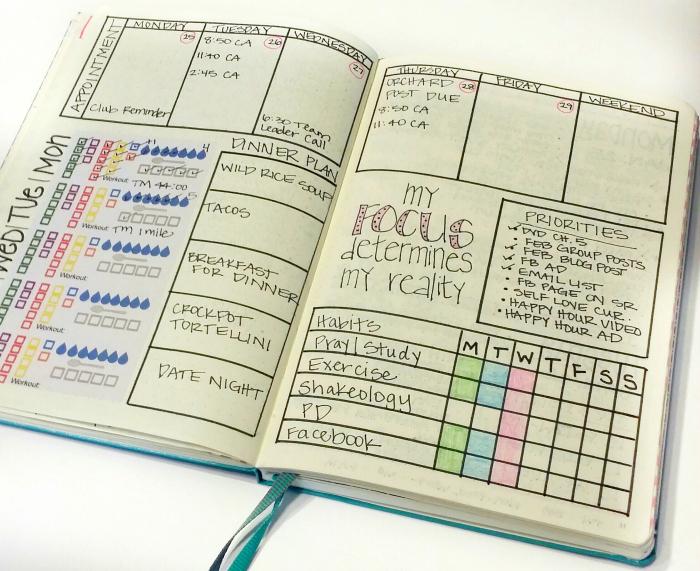 APPOINTMENT
MONDAY
25
Club Reminder
TUESDAY
26
8:50 CA
11:40 CA
2:45 CA
WEDNESDAY
27
6:30 Team
Leader Call
Wed|TUE|Mon
Workout
TM 44:00
Workout
TM 1 mile
Workout
Workout
Workout
DINNER PLAN
WILD RICE SOUP
TACOS
BREAKFAST
FOR DINNER
CROCKPOT
TORTELLINI
DATE NIGHT
THURSDAY
28
ORCHARD
POST DUE
8:50 CA
11:40 CA
FRIDAY
29
WEEKEND
my
FOCUS
determines
my reality
PRIORITIES
DVD CH. 5
FEB GROUP POSTS
FEB BLOG POST
FB AD
EMAIL LIST
FB PAGE ON SR.
SELF LOVE CUR.
HAPPY HOUR VIDEO
HAPPY HOUR AD
Habits
M T W T F S S
Pray|Study
Exercise
Shakeology
PD
Facebook